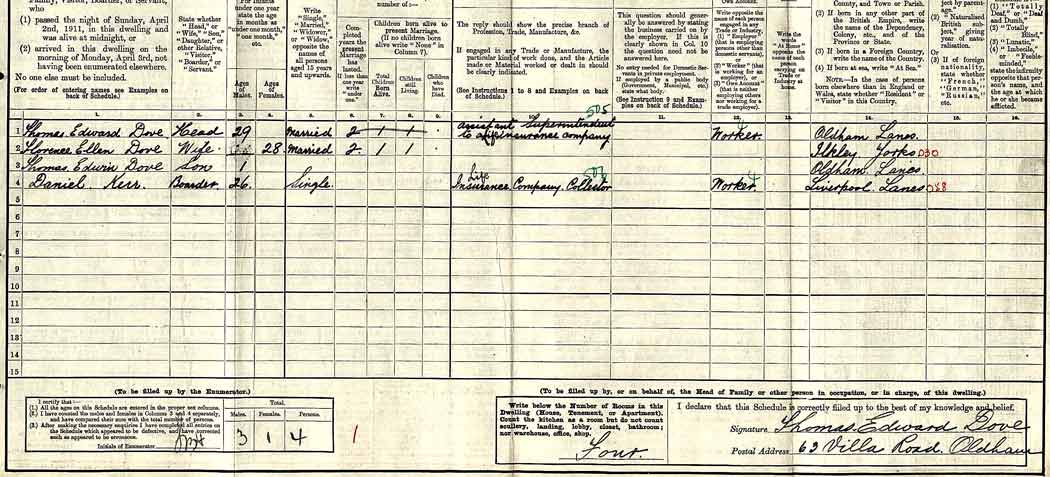 Family, Visitor, Boarder, or Servant,
who
(1) passed the night of Sunday, April
2nd, 1911, in this dwelling and
was alive at midnight, or
(2) arrived in this dwelling on the
morning of Monday, April 3rd, not
having been enumerated elsewhere.
No one else must be included.
(For order of entering names see Examples on
back of Schedule.)
State whether
"Head," or
"Wife," "Son,"
"Daughter,"
or other
Relative,
"Visitor,"
"Boarder," or
"Servant."
For Infants
under one year
state the age
in months as
"under one month,"
"one month,"
etc.
Ages
of
Males.
Ages
of
Females.
Write
"Single,"
"Married,"
"Widower,"
or "Widow,"
opposite the
names of
all persons
aged 15 years
and upwards.
number of:—
Completed
years the
present
Marriage
has
lasted.
If less than
one year
write
"under
one."
Children born alive to
present Marriage.
(If no children born
alive write "None" in
Column 7).
Total
Children
Born
Alive.
Children
still
Living.
Children
who
have
Died.
The reply should show the precise branch of
Profession, Trade, Manufacture, &c.
If engaged in any Trade or Manufacture, the
particular kind of work done, and the Article
made or Material worked or dealt in should
be clearly indicated.
(See Instructions 1 to 8 and Examples on back
of Schedule.)
This question should generally
be answered by stating
the business carried on by
the employer. If this is
clearly shown in Col. 10
the question need not be
answered here.
No entry needed for Domestic Servants
in private employment.
If employed by a public body
(Government, Municipal, etc.)
state what body.
(See Instruction 9 and Examples
on back of Schedule.)
Write opposite the
name of each person
engaged in any
Trade or Industry,
(1) "Employer"
(that is employing
persons other than
domestic servants),
or
(2) "Worker" (that
is working for an
employer), or
(3) "Own Account"
(that is neither
employing others
nor working for a
employer).
Write the
words
"At Home"
opposite the
name of each
person
carrying on
Trade or
Industry at
home.
County, and Town or Parish.
(2) If born in any other part of
the British Empire, write
the name of the Dependency,
Colony, etc., and of the
Province or State.
(3) If born in a Foreign Country,
write the name of the Country.
(4) If born at sea, write "At Sea."
NOTE.—In the case of persons
born elsewhere than in England or
Wales, state whether "Resident" or
"Visitor" in this Country.
1. 2. 3. 4. 5. 6. 7. 8. 9. 10. 11. 12. 13. 14. 15. 16.
505
1 Thomas Edward Dove Head 29 Married 2 1 1 Assistant Superintendent to Life Insurance Company Worker Oldham Lancs.
2 Florence Ellen Dove Wife 28 Married 2 1 1 Ilkley Yorks 030
3 Thomas Edwin Dove Son 1 Oldham Lancs.
4 Daniel Kerr. Boarder 26. Single. Life Insurance Company Collector Worker Liverpool Lancs
5
6
7
8
9
10
11
12
13
14
15
(To be filled up by the Enumerator.)
I certify that:—
(1.) All the ages on this Schedule are entered in the proper sex columns.
(2.) I have counted the males and females in Columns 3 and 4 separately,
and have compared their sum with the total number of persons.
(3.) After making the necessary enquiries I have completed all entries on
the Schedule which appeared to be defective, and have corrected
such as appeared to be erroneous.
Initials of Enumerator
Total.
Males. Females. Persons.
3 1 4
1
(To be filled up by, or on behalf of, the Head of Family or other person in occupation, or in charge, of this dwelling.)
Write below the Number of Rooms in this
Dwelling (House, Tenement, or Apartment).
Count the kitchen as a room but do not count
scullery, landing, lobby, closet, bathroom;
nor warehouse, office, shop.
Four
I declare that this Schedule is correctly filled up to the best of my knowledge and belief.
Signature Thomas Edward Dove
Postal Address 63 Villa Road. Oldham